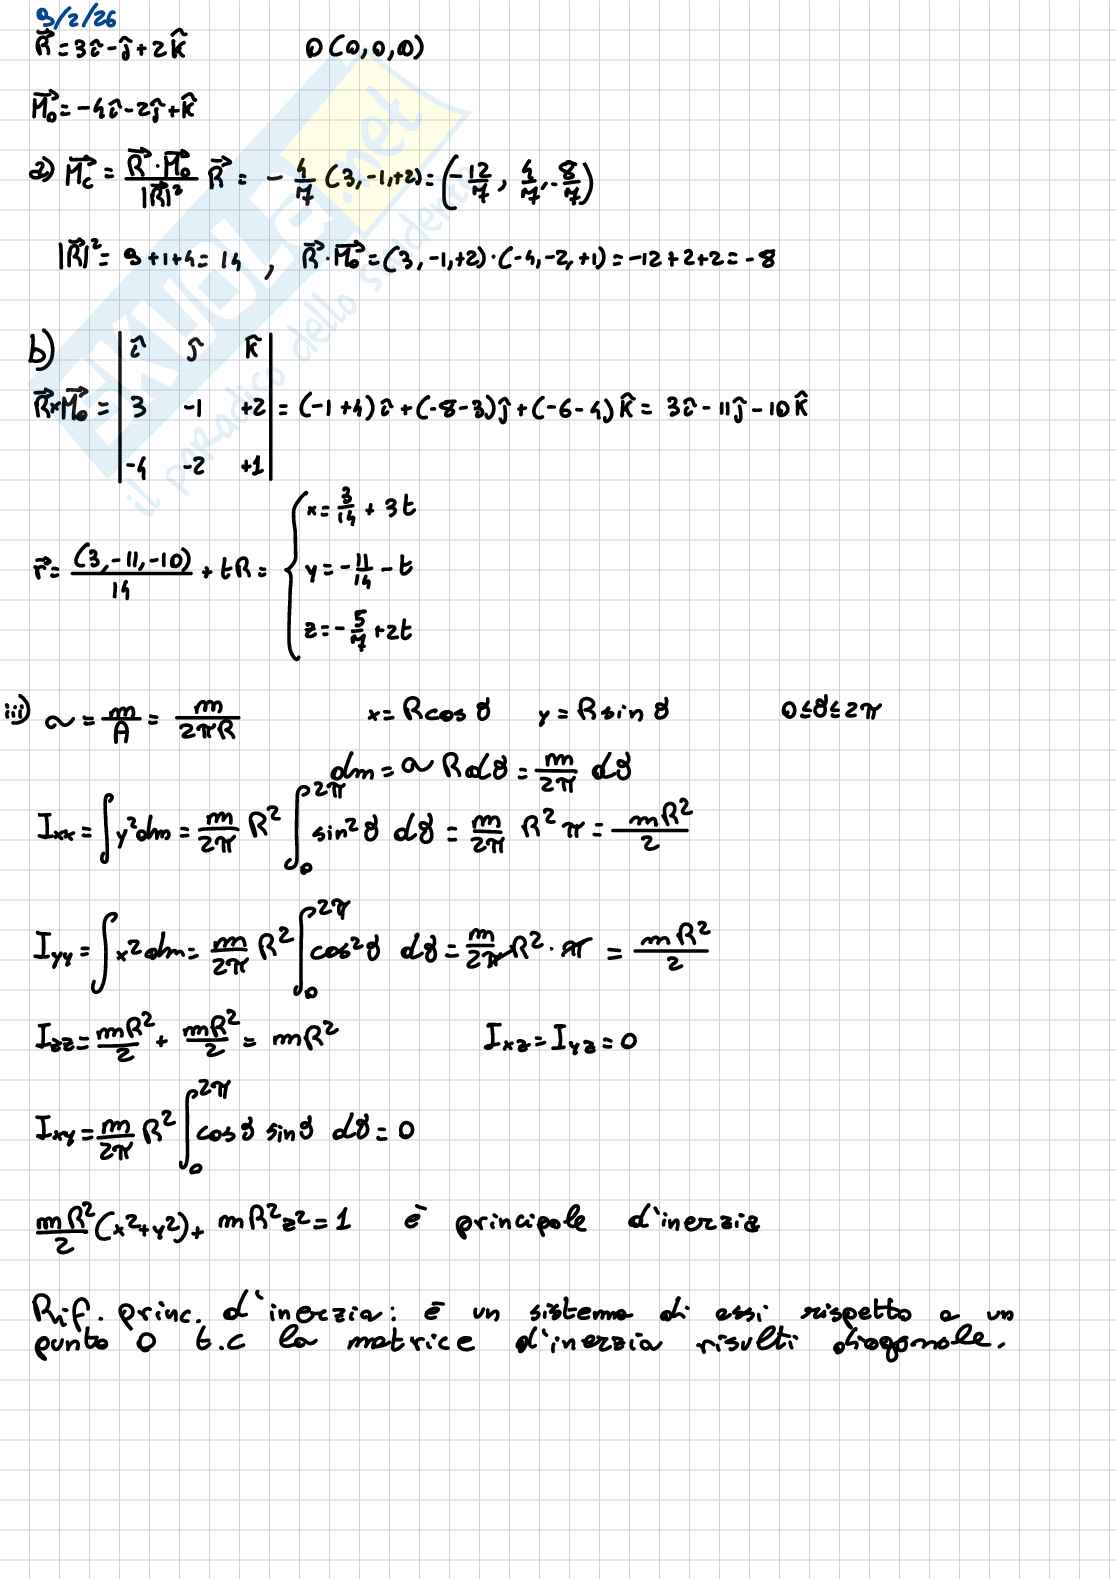 9/2/26
R⃗ = 3î - ĵ + 2k̂    O(0,0,0)
M⃗₀ = -4î - 2ĵ + k̂
a) M⃗c = (R⃗ · M⃗₀)/|R⃗|² R⃗ = - 4/7 (3, -1, +2) = (-12/7, 4/7, -8/7)
|R⃗|² = 9 + 1 + 4 = 14 , R⃗ · M⃗₀ = (3, -1, +2) · (-4, -2, +1) = -12 + 2 + 2 = -8
b)
R⃗ × M⃗₀ = | î ĵ k̂ |
| 3 -1 +2 | = (-1 + 4) î + (-8 - 3) ĵ + (-6 - 4) k̂ = 3î - 11ĵ - 10k̂
| -4 -2 +1 |
r⃗ = (3, -11, -10)/14 + tR = {
x = 3/14 + 3t
y = -11/14 - t
z = -5/7 + 2t
iii) ~ = m/A = m/2πR    x = R cos ϑ    y = R sin ϑ    0 ≤ ϑ ≤ 2π
dm = ~ R dϑ = m/2π dϑ
Ixx = ∫ y² dm = m/2π R² ∫₀^2π sin² ϑ dϑ = m/2π R² π = mR²/2
Iyy = ∫ x² dm = m/2π R² ∫₀^2π cos² ϑ dϑ = m/2π R² · π = mR²/2
Izz = mR²/2 + mR²/2 = mR²    Ixz = Iyz = 0
Ixy = m/2π R² ∫₀^2π cos ϑ sin ϑ dϑ = 0
mR²/2 (x² + y²) + mR² z² = 1    è principale d'inerzia
Rif. princ. d'inerzia: è un sistema di assi rispetto a un
punto O t.c la matrice d'inerzia risulti diagonale.
SKUOLA.net
il paradiso dello studente